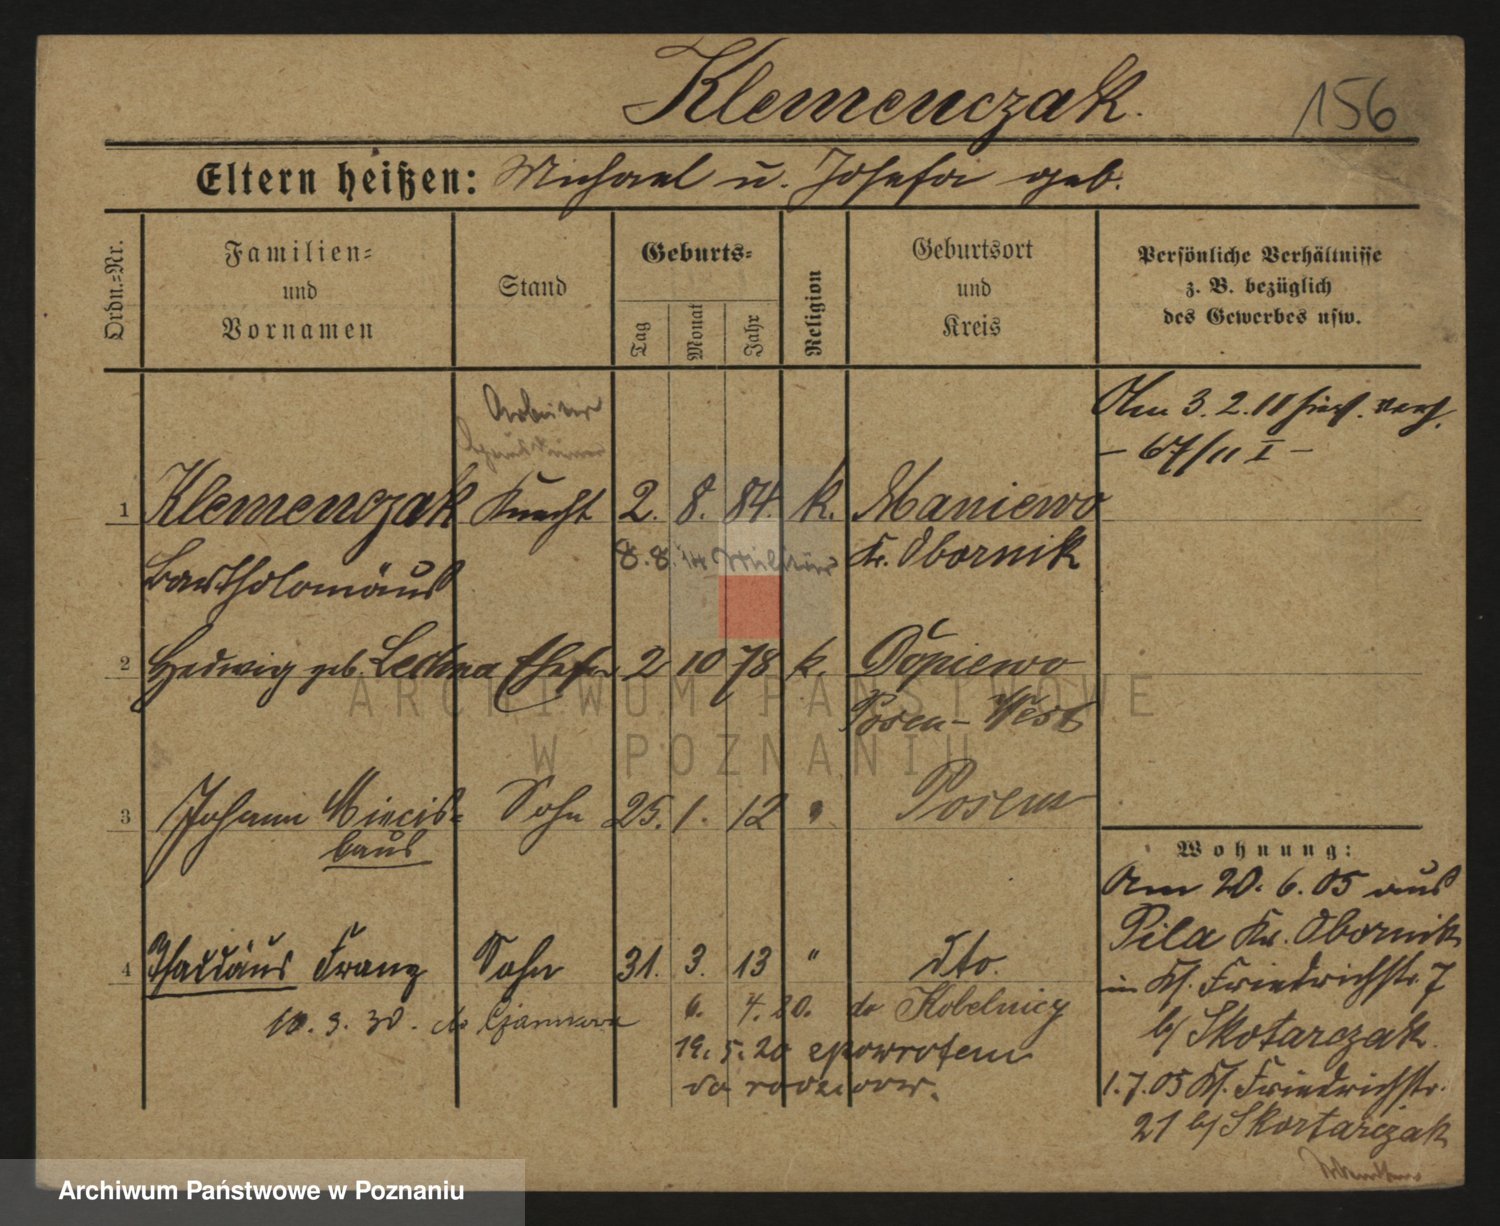 Klemenczak.
156
Eltern heißen: Michael u. Josefa geb.
Ordn.=Nr.
Familien=
und
Vornamen
Stand
Geburts=
Tag
Monat
Jahr
Religion
Geburtsort
und
Kreis
Persönliche Verhältnisse
z. B. bezüglich
des Gewerbes usw.
Arbeiter
Am 3. 2. 11 hies. verh.
- 67/11 I -
1 Klemenczak Knecht 2. 8. 84. k. Maniewo
8. 8. 14 Militär Kr. Obornik
Bartholomäus
2 Hedwig geb. Ehefr. 2 10 78 k. Dopiewo
Posen-West
3 Johann Miecis= Sohn 25. 1. 12 " Posen
laus
Wohnung:
Am 20. 6. 05 aus
Pila Kr. Obornik
in Kl. Friedrichstr. 7
b/ Skotarczak.
1. 7. 05 Kl. Friedrichstr.
21 b/ Skortarczak
4 Thaddäus Franz Sohn 31. 3. 13 " dto.
10. 9. 30. do
6. 4. 20. do Kobelnicy
19. 5. 20 zpowrotem
do rodziców.
ARCHIWUM PAŃSTWOWE
W POZNANIU
Archiwum Państwowe w Poznaniu